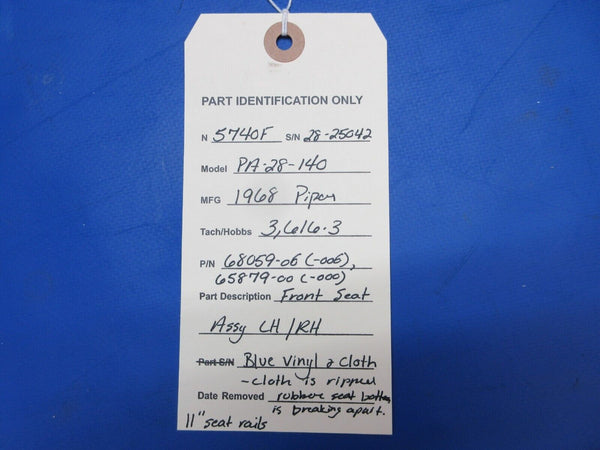 PART IDENTIFICATION ONLY
N 5740F S/N 28-25042
Model PA-28-140
MFG 1968 Piper
Tach/Hobbs 3,616.3
P/N 68059-06 (-006),
65879-00 (-000)
Part Description Front Seat
Assy LH/RH
Part S/N Blue Vinyl & Cloth
- cloth is ripped
Date Removed rubber seat bottom
is breaking apart.
11" seat rails